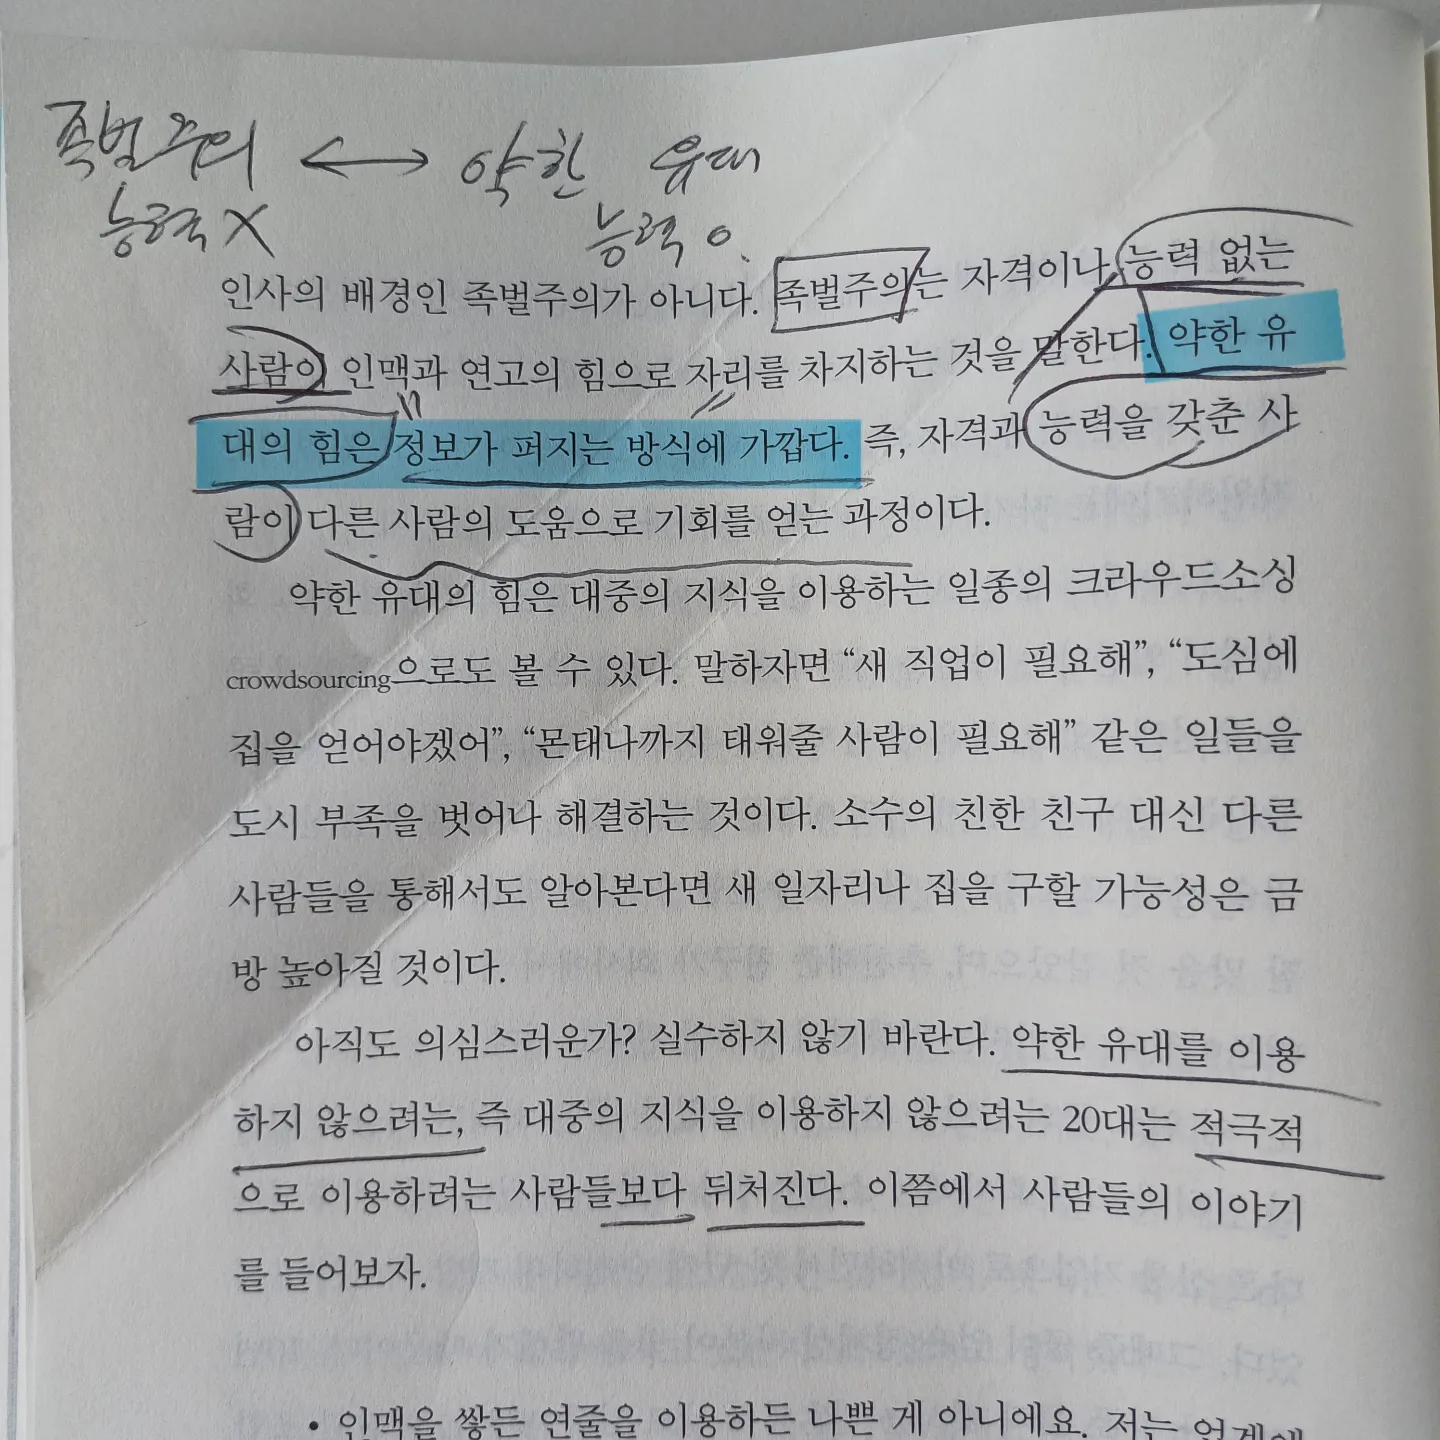 족벌주의 ↔ 약한 유대
능력 X 능력 o.
인사의 배경인 족벌주의가 아니다. 족벌주의는 자격이나 능력 없는
사람이 인맥과 연고의 힘으로 자리를 차지하는 것을 말한다. 약한 유
대의 힘은 정보가 퍼지는 방식에 가깝다. 즉, 자격과 능력을 갖춘 사
람이 다른 사람의 도움으로 기회를 얻는 과정이다.
약한 유대의 힘은 대중의 지식을 이용하는 일종의 크라우드소싱
crowdsourcing으로도 볼 수 있다. 말하자면 “새 직업이 필요해”, “도심에
집을 얻어야겠어”, “몬태나까지 태워줄 사람이 필요해” 같은 일들을
도시 부족을 벗어나 해결하는 것이다. 소수의 친한 친구 대신 다른
사람들을 통해서도 알아본다면 새 일자리나 집을 구할 가능성은 금
방 높아질 것이다.
아직도 의심스러운가? 실수하지 않기 바란다. 약한 유대를 이용
하지 않으려는, 즉 대중의 지식을 이용하지 않으려는 20대는 적극적
으로 이용하려는 사람들보다 뒤처진다. 이쯤에서 사람들의 이야기
를 들어보자.
• 인맥을 쌓든 연줄을 이용하든 나쁜 게 아니에요. 저는 업계에